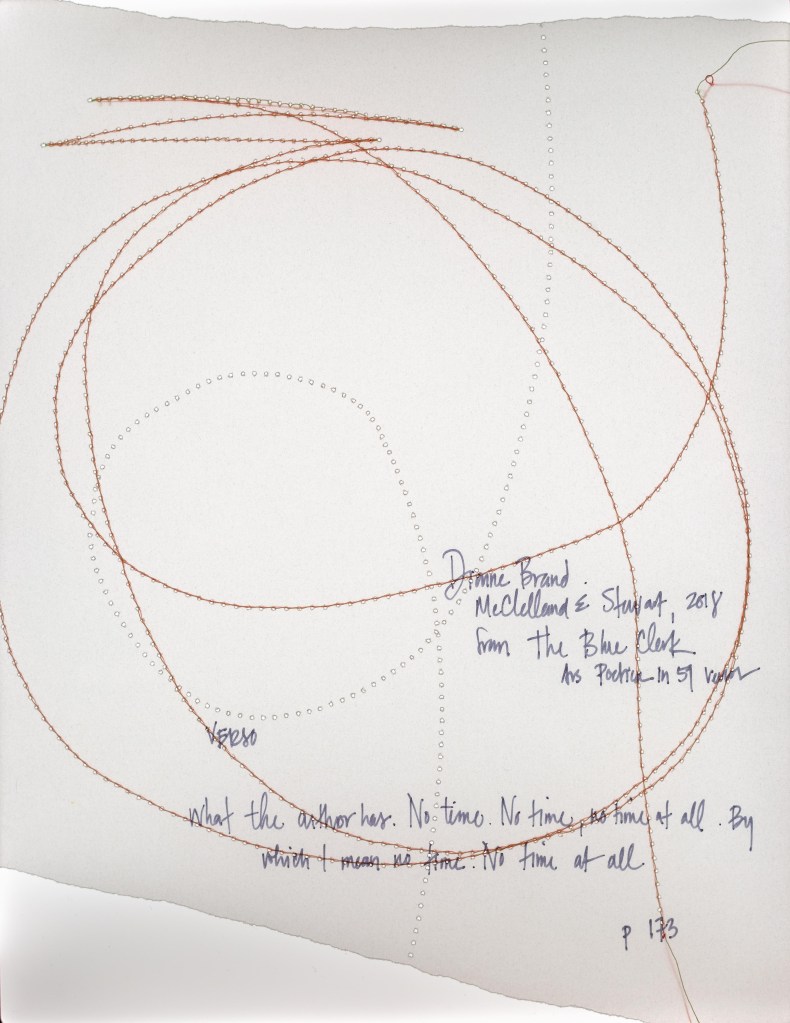 Dionne Brand.
McClelland & Stewart, 2018
from The Blue Clerk.
Ars Poetica in 59 versos
VERSO
What the author has. No time. No time, no time at all. By
which I mean no time. No time at all.
p 173